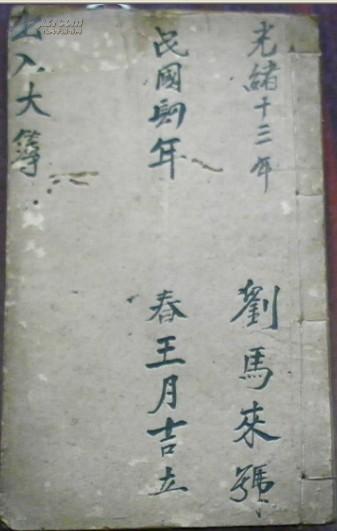 光緒十三年
劉馬來號
民國四年
春王月吉立
出入大簿